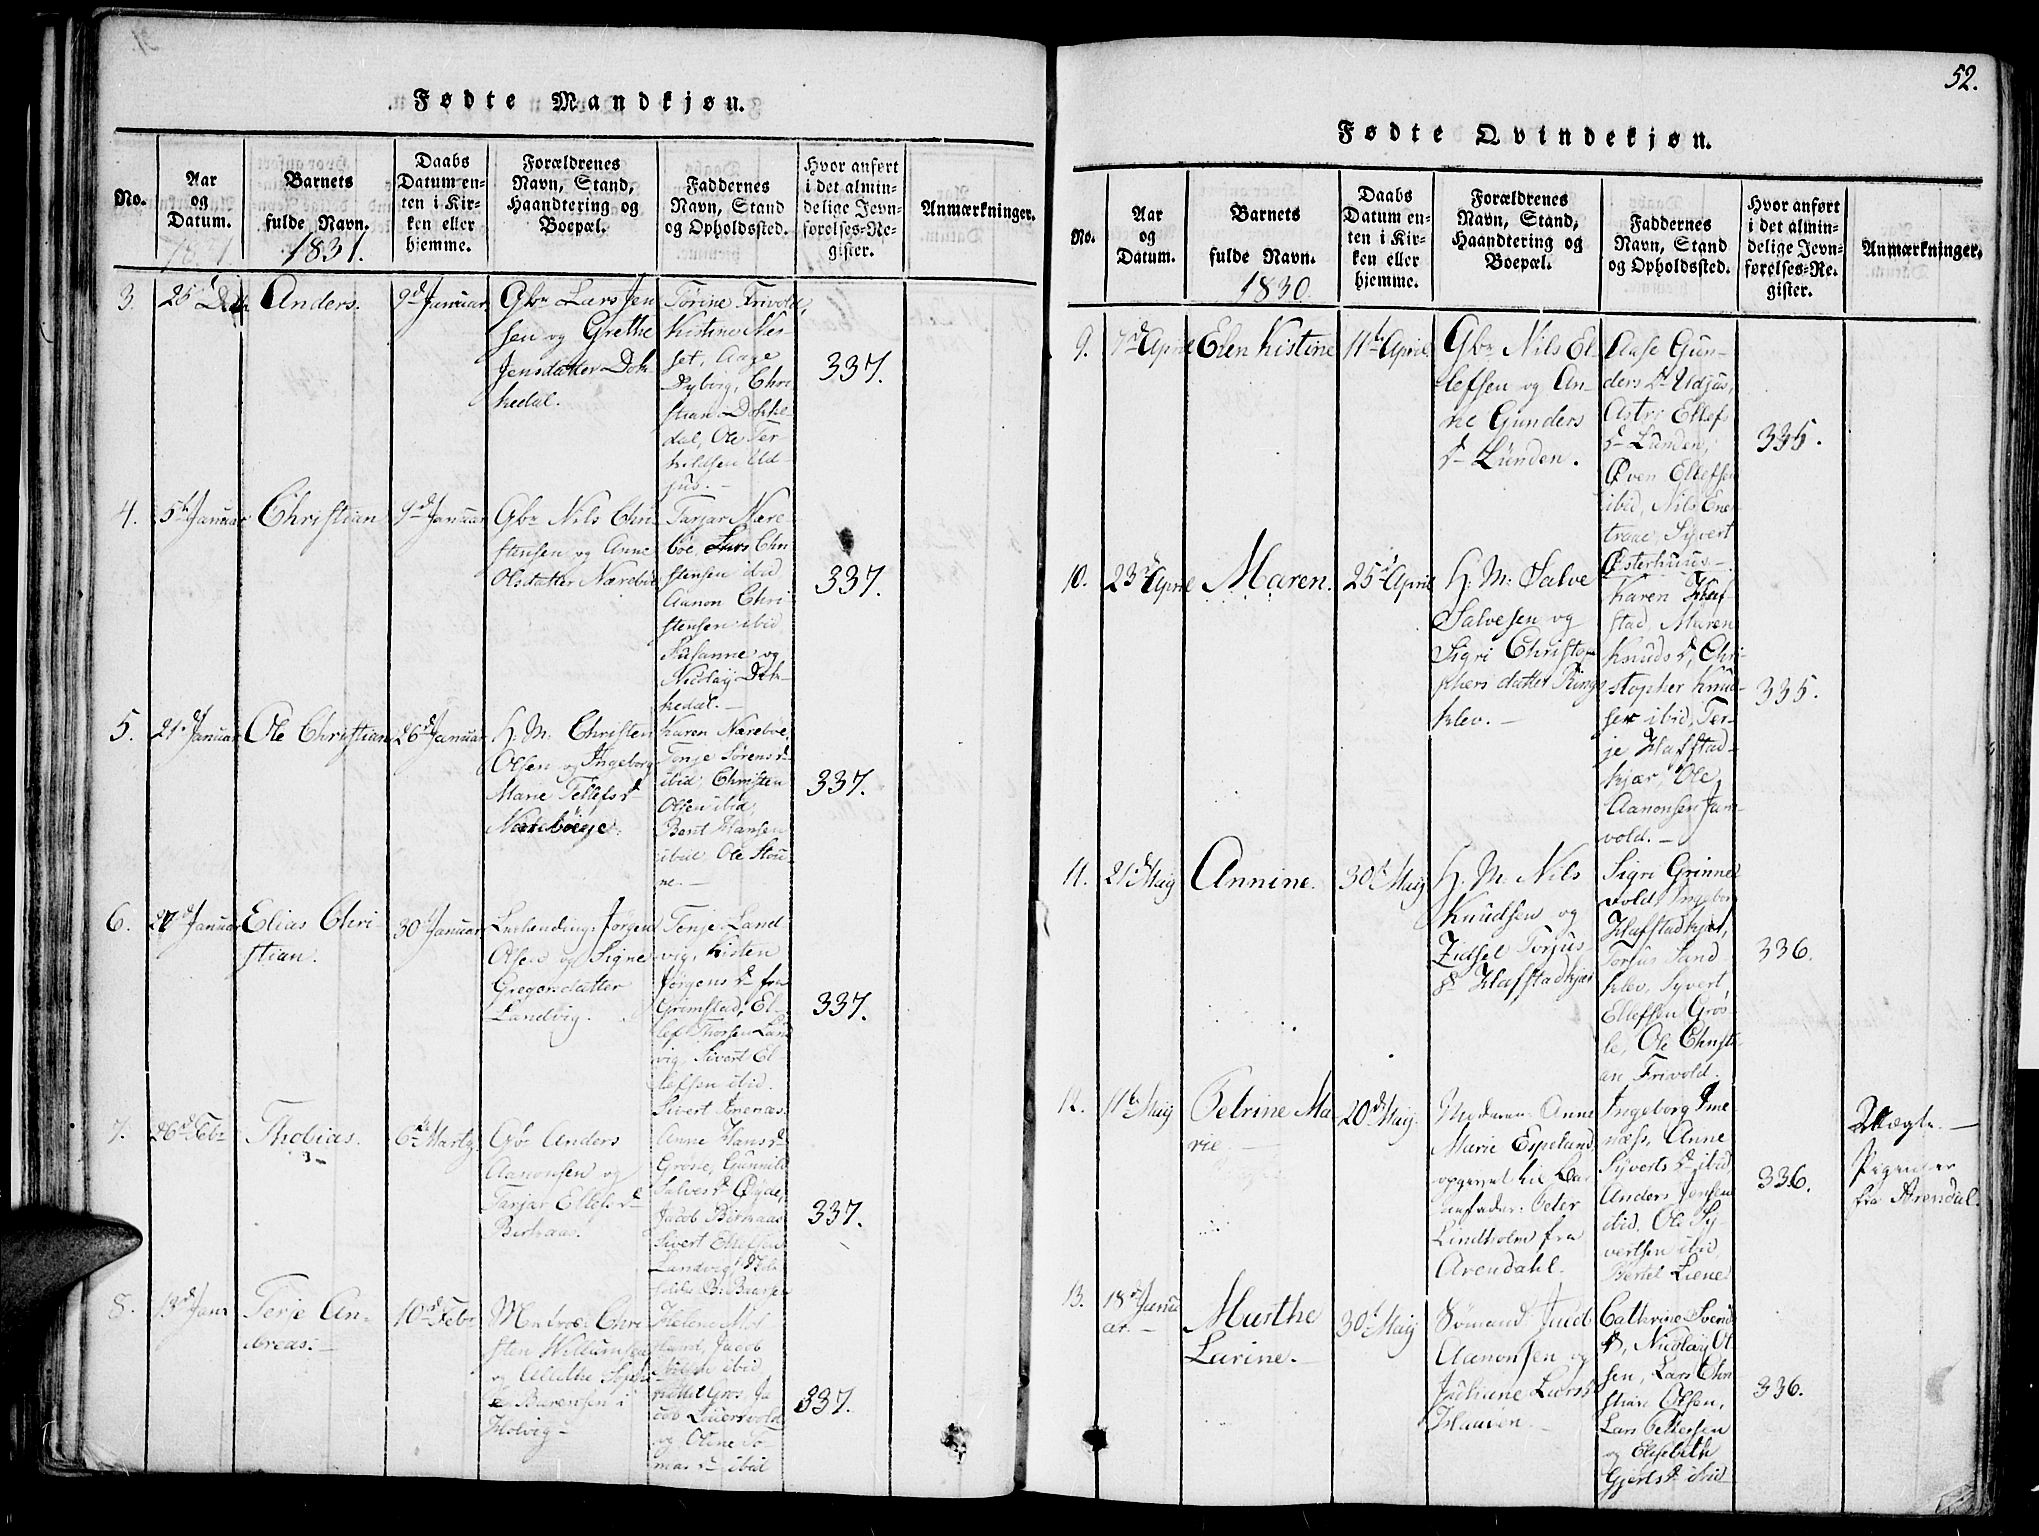 Fødte Mandkjøn.
No.
Aar
og
Datum.
Barnets
fulde Navn.
1831.
Daabs
Datum en-
ten i Kir-
ken eller
hjemme.
Forældrenes
Navn, Stand,
Haandtering og
Boepæl.
Faddernes
Navn, Stand
og Opholdssted.
Hvor anført
i det almin-
delige Jevn-
førelses-Re-
gister.
Anmærkninger.
3.
Anders.
9d Januar
Gbr Lars Jen
sen og Grethe
Jensdatter Dok
kedal.
Torine Frivold,
Kistine Nes-
set, Aage
Dybvig, Chri
stian Dokke
dal, Ole Ter-
kildsen Ud-
jus.-
337.
4.
5t Januar
Christian
9d Januar
Gbr Nils Chri-
stensen og Anne
Olsdatter Nærebøe
Tarjar Nære-
bøe, Lars Chri
stensen ibid
Aanon Chri-
stensen ibid
Susanne og
Nicolay Dok-
kedal.-
337.
5.
21d Januar
Ole Christian
26d Januar
H. M. Christen
Olsen og Ingeborg
Marie Tellefs d
Nærebøe
Karen Nærebøe,
Tonje Sørens d
ibid, Christen
Olsen ibid,
Bent Hansen
ibid, Ole Stou-
ne.-
337.
6.
Januar
Elias Chri-
stian.
30 Januar
Jørgen
Olsen og Signe
Gregersdatter
Landvig.
Tonje Land
vig, Kisten
Jørgens d fra
Grimstad, El-
lef Thorsen Land
vig, Sivert El-
lefsen ibid.
Sivert
337.
7.
26d Febr
Thobias.
6te Martz
Gbr Anders
Aanonsen og
Tarjar Ellefs d
Birkaas.
Anne Hans d
Grøne, Gunnild
Salves d Øyde,
Jacob Birkaas
Sivert Ellefsen
Landvig
337.
8.
13d Janr
Terje An-
dreas.-
10d Febr
Chri
sten Willumsen
og Alethe
Barentsen i
Holvig-
Helene
land, Jacob
ibid
Kittel Gros, Ja
cob
og Oline To
mas d ibid
337.
52.
Fødte Qvindekjøn.
No.
Aar
og
Datum.
Barnets
fulde Navn.
1830.
Daabs
Datum en-
ten i Kir-
ken eller
hjemme.
Forældrenes
Navn, Stand,
Haandtering og
Boepæl.
Faddernes
Navn, Stand
og Opholdssted.
Hvor anført
i det almin-
delige Jevn-
førelses-Re-
gister.
Anmærkninger.
9.
7d April
Elen Kistine
11te April
Gbr Nils El-
lefsen og An-
ne Gunders
d Lunden.
Aase Gun-
ders d Udjus,
Astri Ellefs
d Lunden,
Øven Ellefsen
ibid, Nils Ene-
træe, Syvert
Østerhuus.
335.
10.
23d April
Maren.
25d April
H. M. Salve
Salvesen og
Sigri Christo-
phers datter Rings
klev.-
Karen Haf-
stad, Maren
Knuds d, Chri-
stopher Knud-
sen ibid, Ter-
je Hafstad-
kjær, Ole
Aanonsen Jan-
vold.-
335.
11.
21d Maij
Annine.
30d Maij
H. M. Nils
Knudsen og
Zidsel Torjus
d Hafstadkjær
Sigri Grinne
vold, Ingeborg
Hafstadkjær,
Torjus Sand
klev, Syvert
Ellefsen Gros-
le, Ole Christi-
an Frivold.
336.
12.
11te Maij
Petrine Ma
rie.-
20d Maij
Moderen Anne
Marie Espeland,
opgevet til Bar
nefader: Peter
Lindholm fra
Arendahl.
Ingeborg Ime
næss, Anne
Syverts d ibid,
Anders Jensen
ibid, Ole Sy-
vertsen ibid,
Bertel Liene
336.
Uægte.-
Pigen er
fra Arendal.
13.
18d Janu
ar.-
Marthe
Larine.-
30d Maij
Sømand Juul
Aanonsen og
Juliane Lars d
Hauen.-
Cathrine Svend
d, Nicolay Ol
sen, Lars Chri
stian Olsen,
Lars Pettersen
og Elisabeth
Gjerts d ibid
336.